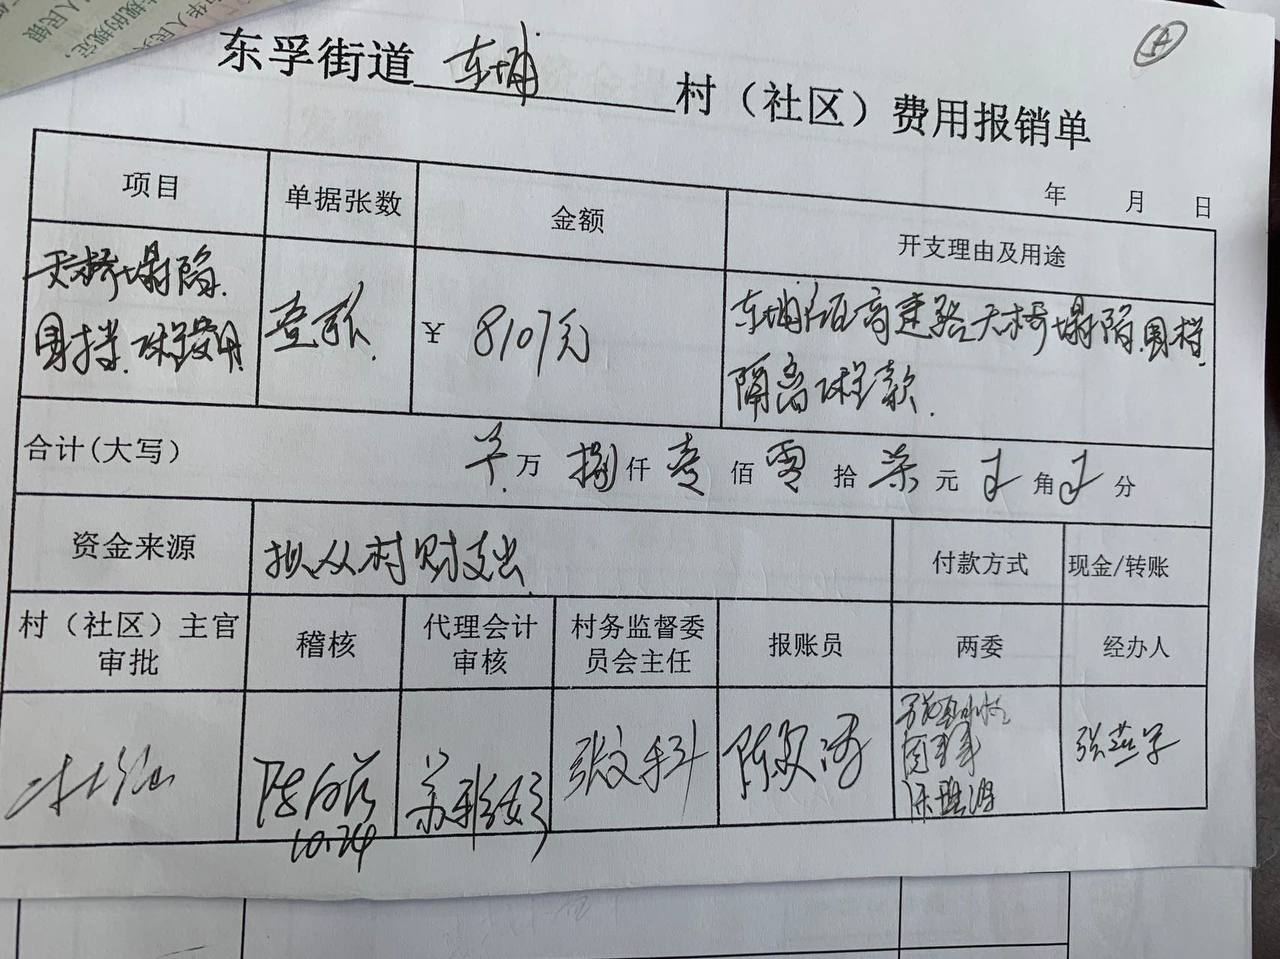 东孚街道 东埔 村（社区）费用报销单
年 月 日
项目 单据张数 金额 开支理由及用途
天桥塌陷.
围挡.工程费用
壹张
￥ 8107元
东埔 高速路天桥塌陷.围挡.
隔离工程款.
合计(大写) 万 捌 仟 壹 佰 零 拾 柒 元 角 分
资金来源 拟从村财支出 付款方式 现金/转账
村（社区）主官
审批
稽核
代理会计
审核
村务监督委
员会主任
报账员
两委
经办人
10.24
苏彩
张文
陈
张燕